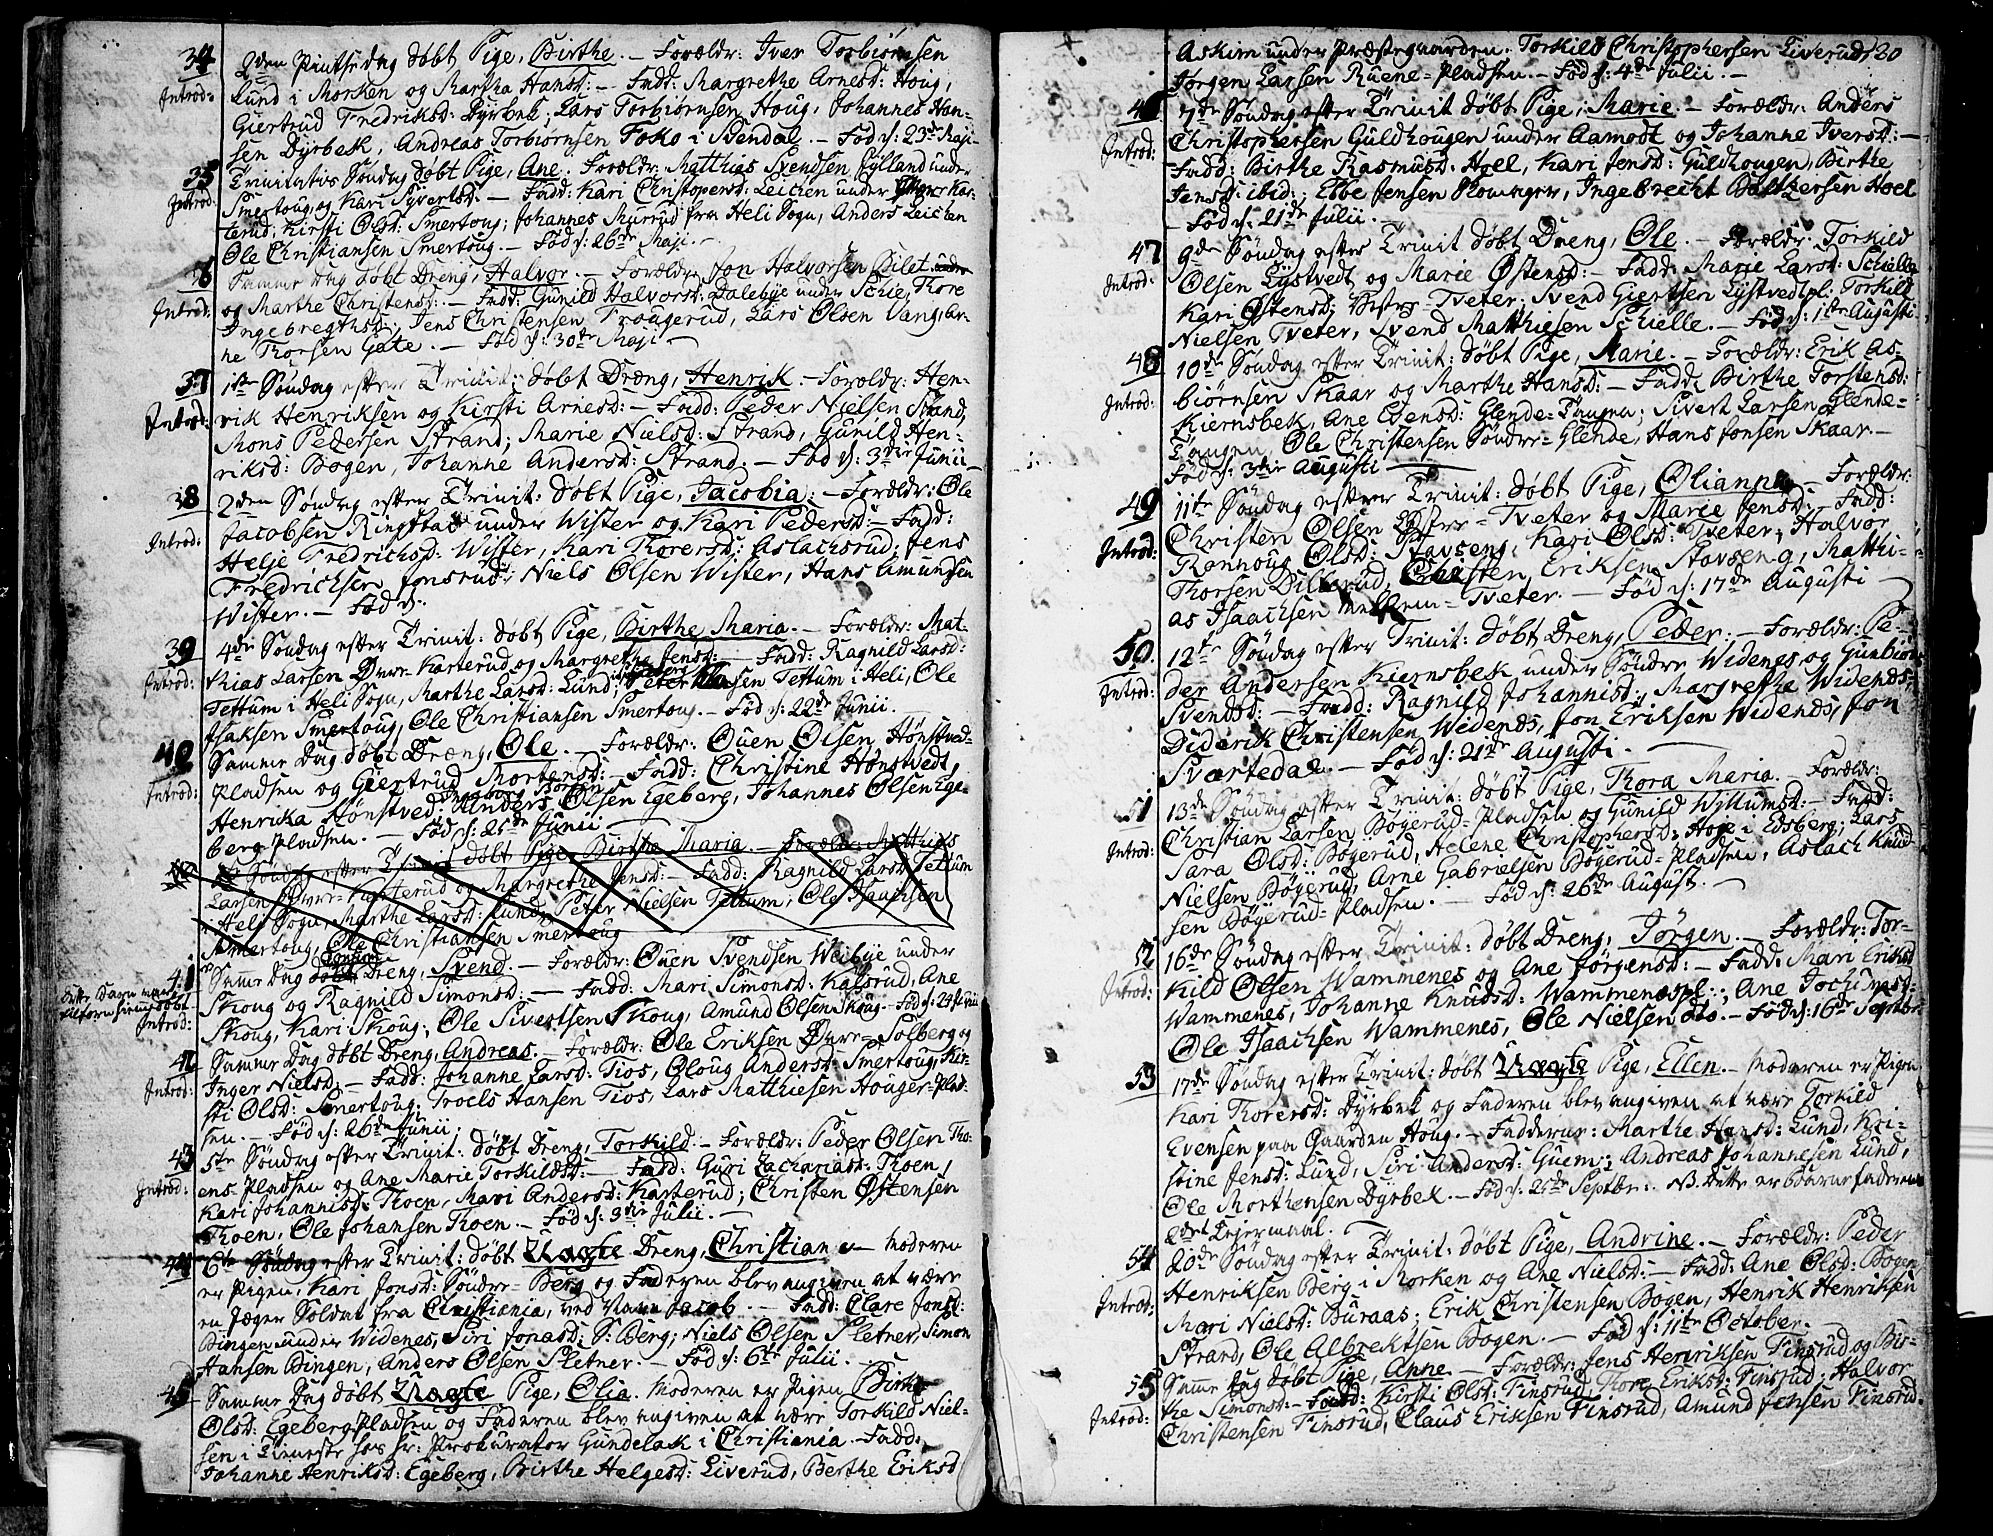 34 2den Pintsedag døbt Pige, Birthe. — Forældr: Iver Torbiørnsen
Introd: Lund i Morken og Martha Hansd: — Fadd: Margrethe Arnesd: Houg,
Giertrud Fredriksd: Dyrbek, Lars Torbiørnsen Houg, Johannes Han-
sen Dyrbek, Andreas Torbiørnsen Foko i Svendal. — Fød d: 23de Maji —
35 Trinitatis Søndag døbt Pige, Ane. Forældr: Matthias Svendsen Jylland under
Introd: Smertoug og Kari Syvertsd: — Fadd: Kari Christopersd: Leichen under Kar-
terud, Kirsti Olsd: Smertoug, Johannes Murrud fra Heli Sogn, Anders Leichen
Ole Christiansen Smertoug. — Fød d: 26de Maji. —
36 Samme Dag døbt Dreng, Halvor. — Forældr: Jon Halvorsen Bilet under
Introd: og Marthe Christensd: — Fadd: Gunild Halvorsd: Dalebye under Schie, Thore
Ingebregthsd:, Jens Christensen Trougerud, Lars Olsen Vang, Ar-
ne Thorsen Gate. — Fød d: 30te Maji —
37 1ste Søndag efter Trinit: døbt Dreng, Henrik. — Forældr: Hen-
Introd: rik Henriksen og Kirsti Arnesd: — Fadd: Peder Nielsen Strand,
Mons Pedersen Strand; Marie Nielsd: Strand, Gunild Hen-
riksd: Bogen, Johanne Andersd: Strand. — Fød d: 3die Junii —
38 2den Søndag efter Trinit: døbt Pige, Jacobia. — Forældr: Ole
Introd: Jacobsen Ringstad under Wister og Kari Pedersd: — Fadd:
Helje Fredrichsd: Wister, Kari Thorersd: Aslachsrud; Jens
Fredrichsen Jonsrud; Niels Olsen Wister, Hans Amundsen
Wister. — Fød d:
39 4de Søndag efter Trinit: døbt Pige, Birthe Maria. — Forældr: Mat-
Introd: thias Larsen Øvre-Karterud og Margrethe Jensd: — Fadd: Ragnild Larsd:
Tettum i Heli Sogn, Marthe Larsd: Lund; Peter Nielsen Tettum i Heli, Ole
Isaksen Smertoug, Ole Christiansen Smertoug. — Fød d: 22de Junii.
40 Samme Dag døbt Dreng, Ole. — Forældr: Ouen Olsen Hønstved-
Introd: Pladsen og Giertrud Mortensd: — Fadd: Christine Hønstvedt,
Henrika Hønstved; Anders Olsen Egeberg, Johannes Olsen Ege-
berg-Pladsen. — Fød d: 25de Junii —
Søndag efter Trinit døbt Pige Birthe Maria. — Forældr: Matthias
Larsen Øvre-Karterud og Margrethe Jensd: — Fadd: Ragnild Larsd: Tettum
i Heli Sogn, Marthe Larsd: Lund; Peter Nielsen Tettum, Ole Isaachsen
Smertoug, Ole Christiansen Smertoug
41 Samme Dag døbt Dreng, Svend. — Forældr: Ouen Svendsen Weibye under
Dette Barn var tilforn hiemmedøbt
Introd: Skoug og Ragnild Simonsd: — Fadd: Mari Simonsd: Kalsrud, Ane
Skoug, Kari Skoug; Ole Sivertsen Skoug, Amund Olsen Skoug. — Fød d: 24de Junii
42 Samme Dag døbt Dreng, Andreas. — Forældr: Ole Eriksen Øvre-Solberg og
Introd: Inger Nielsd: — Fadd: Johanne Larsd: Tios, Oloug Andersd: Smertoug, Kir-
sti Olsd: Smertoug; Troels Hansen Tios, Lars Matthiesen Houger-Plad-
sen. — Fød d: 26de Junii.
43 5te Søndag efter Trinit: døbt Dreng, Torkild. — Forældr: Peder Olsen Tho-
Introd: ens-Pladsen og Ane Marie Torkildsd: — Fadd: Guri Zachariasd: Thoen,
Kari Johannisd: Thoen, Mari Andersd: Karterud; Christen Østensen
Thoen, Ole Johansen Thoen. — Fød d: 3die Julii. —
44 6te Søndag efter Trinit: døbt Uægte Dreng, Christian. — Moderen
er Pigen, Kari Jonsd: Søndre-Berg og Faderen blev angiven at være
en Jæger Soldat fra Christiania, ved Navn Jacob. — Fadd: Clare Jonsd:
Bingen under Widenes, Siri Jonasd: S: Berg; Niels Olsen Sletner, Simon
Hansen Bingen, Anders Olsen Sletner. — Fød d: 6te Julii. —
45 Samme Dag døbt Uægte Pige, Olia. Moderen er Pigen Birthe
Olsd: Egeberg-Pladsen og Faderen blev angiven at være Torkild Niel-
sen i Tieneste hos Hr: Prokurator Gundelak i Christiania. — Fadd:
Johanne Henriksd: Egeberg, Birthe Helgesd: Liverud, Berthe Eriksd
Askim under Præstegaarden. Torkild Christophersen Liverud, 20
Jørgen Larsen Ruene-Pladsen. — Fød d: 4de Julii. —
46 7de Søndag efter Trinit døbt Pige, Marie — Forældr: Anders
Introd: Christophersen Guldhougen under Aamodt og Johanne Iversd: —
Fadd: Birthe Rasmusd: Hoel, Kari Jensd: Guldhougen, Birthe
Jensd: ibid:; Ebbe Jensen Romager, Ingebrecht Baltzersen Hoel
— Fød d: 21de Julii. —
47 9de Søndag efter Trinit døbt Dreng, Ole. — Forældr: Torkild
Introd: Olsen Lystvedt og Marie Østensd: — Fadd: Marie Larsd: Schielle
Kari Østensd: Vester-Tveter; Svend Giertsen Lystvedtpl: Torkild
Nielsen Tveter, Svend Matthiesen Schielle. — Fød d: 1ste Augusti
48 10de Søndag efter Trinit: døbt Pige, Marie. — Forældr: Erik As-
Introd: biørnsen Skaar og Marthe Hansd: — Fadd: Birthe Torstensd:
Kiernsbek, Ane Evensd: Glende-Tangen; Sivert Larsen Glende-
Tangen, Ole Christensen Søndre-Glende, Hans Jonsen Skaar. —
Fød d: 3die Augusti —
49 11te Søndag efter Trinit: døbt Pige, Olianna. — Forældr:
Introd: Christen Olsen Østre-Tveter og Marie Jensd: Fadd:
Rønnoug Olsd: Stavseng, Kari Olsd: Tveter; Halvor
Thorsen Dillerud, Christen Eriksen Stavseng, Matthi-
as Isaachsen Mellem-Tveter. — Fød d: 17de Augusti —
50 12te Søndag efter Trinit: døbt Dreng, Peder. — Forældr: Pe-
Introd: der Andersen Kiernsbek under Søndre Widenes og Gunbiør
Svendsd: — Fadd: Ragnild Johannisd:, Margrethe Widenes;
Diderik Christensen Widenes, Jon Eriksen Widenes, Jon
Svartedal. — Fød d: 21de Augusti. —
51 13de Søndag efter Trinit: døbt Pige, Thora Maria. — Forældr:
Introd: Christian Larsen Bøgerud-Pladsen og Gunild Willumsd: — Fadd:
Sara Olsd: Bøgerud, Helene Christophersd: Hoge i Edsberg; Lars
Nielsen Bøgerud, Arne Gabrielsen Bøgerud-Pladsen, Aslach Knud-
sen Bøgerud-Pladsen. — Fød d: 26de August. —
52 16de Søndag efter Trinit: døbt Dreng, Jørgen. — Forældr: Tor-
Introd: kild Olsen Wammenes og Ane Jørgensd: — Fadd: Mari Eriksd
Wammenes, Johanne Knudsd: Wammenespl:, Ane Jochumsd:
Ole Isaachsen Wammenes, Ole Nielsen dto. — Fød d: 16de Septbr:
53 17de Søndag efter Trinit: døbt Uægte Pige, Ellen. — Moderen er Pigen
Kari Thorersd: Dyrbek og Faderen blev angiven at være Torkild
Evensen paa Gaarden Houg. — Fadderne: Marthe Hansd: Lund, Kri-
stine Jensd: Lund, Siri Andersd: Guem; Andreas Johannesen Lund,
Ole Morthensen Dyrbek. — Fød d: 25de Septbr:. NB. Dette er baare Faderens
2det Lejermaal. —
54 20de Søndag efter Trinit: døbt Pige, Andrine. — Forældr: Peder
Introd: Henriksen Berg i Morken og Ane Nielsd: — Fadd: Ane Olsd: Bogen
Mari Nielsd: Buraas; Erik Christensen Bogen, Henrik Henriksen
Strand, Ole Albrektsen Bogen. — Fød d: 11te October. —
55 Samme Dag døbt Pige, Anne. — Forældr: Jens Henriksen Finsrud og Bir-
Introd: the Simonsd: — Fadd: Kirsti Olsd: Finsrud, Thore Eriksd: Finsrud; Halvor
Christensen Finsrud, Claus Eriksen Finsrud, Amund Jensen Finsrud.